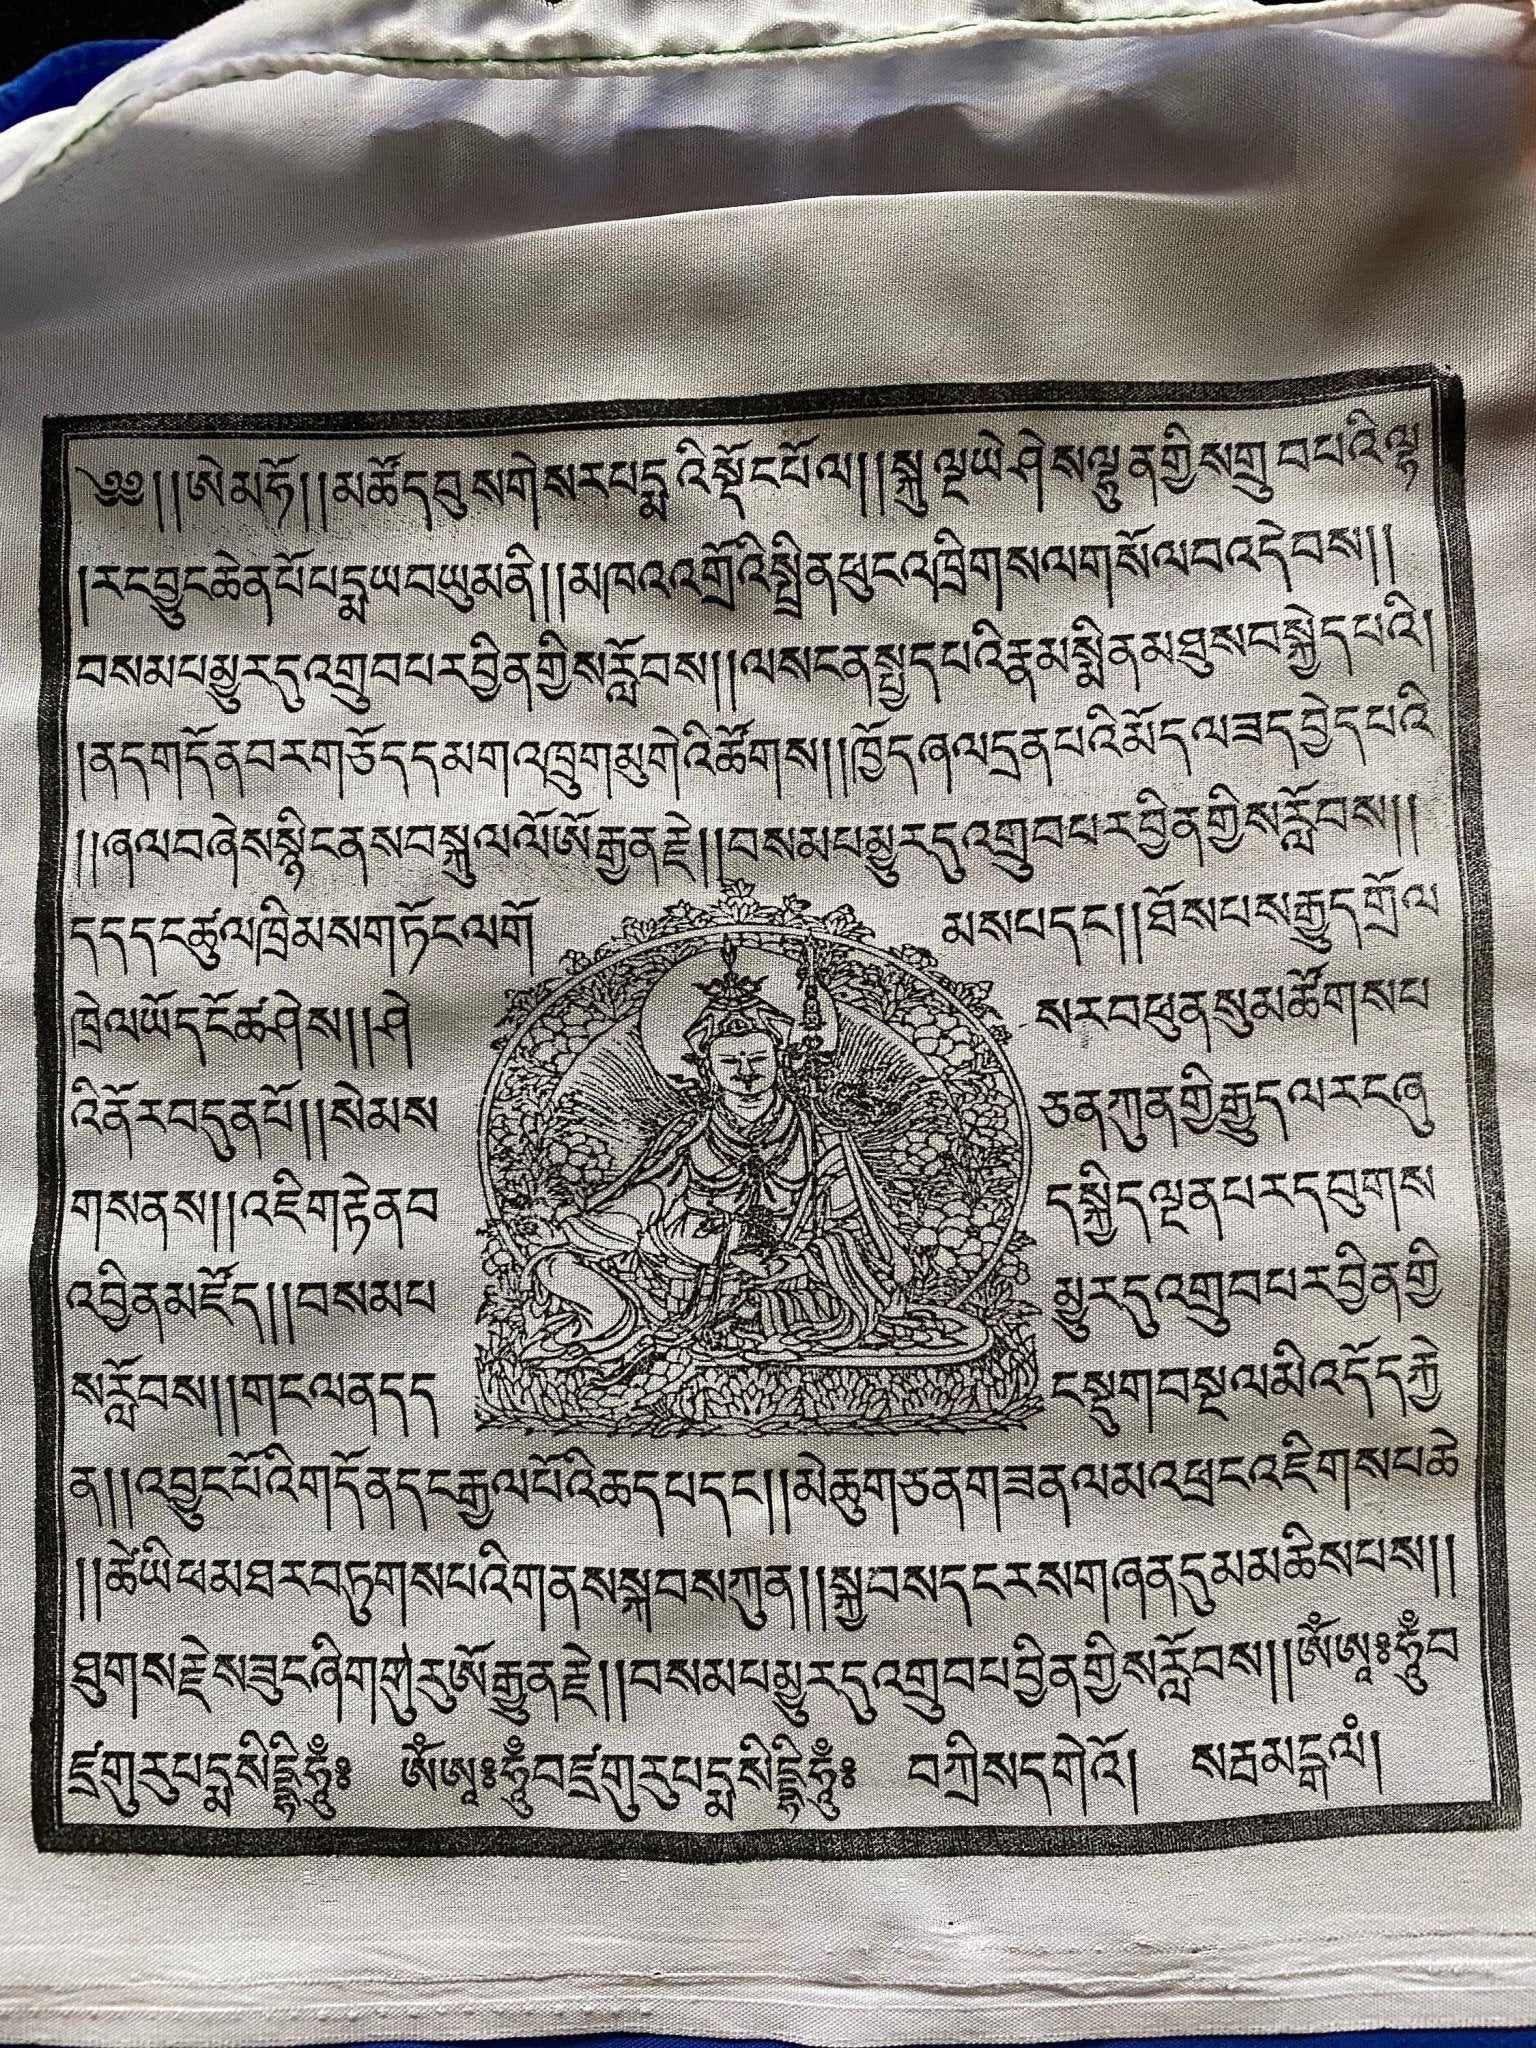 ༄༅།།ཨེམཧོ།།མཚོདབུསགེསརཔདྨའིསྡོངཔོལ།།སྐུལྔཡེཤེསལྷུནགྱིསགྲུབཔའིལྷ
།རངབྱུངཆེནཔོཔདྨཡབཡུམནི།།མཁའའགྲོའིསྤྲིནཕུངའཁྲིགསལགསོལབའདེབས།།
བསམཔམྱུརདུའགྲུབཔརབྱིནགྱིསརློབས།།ལསངནསྤྱདཔའིརྣམསྨིནམཐུསབསྐྱེདཔའི།
།ནདགདོནབརགཅོདདམགའཁྲུགམུགེའིཚོགས།།ཁྱོདཞལདྲནཔའིམོདལཟདབྱེདཔའི
།།ཞལབཞེསསྙིངནསབསྐུལལོཨོརྒྱནརྗེ།།བསམཔམྱུརདུའགྲུབཔརབྱིནགྱིསརློབས།།
དདདངཚུལཁྲིམསགཏོངལགོ མསཔདང།།ཐོསཔསརྒྱུདགྲོལ
ཁྲེལཡོདངོཚཤེས།།ཤེ སརབཕུནསུམཚོགསཔ
འིནོརབདུནཔོ།།སེམས ཅནཀུནགྱིརྒྱུདལརངཞུ
གསནས།།འཇིགརྟེནབ དསྐྱིདལྡནཔརདབུགས
འབྱིནམཛོད།།བསམཔ མྱུརདུའགྲུབཔརབྱིནགྱི
སརློབས།།གངལནདད ངསྡུགབསྔལམིའདོདརྐྱེ
ན།།འབྱུངཔོའིགདོནདངརྒྱལཔོའིཆདཔདང།།མེཆུགཅནགཟནལམའཕྲངའཇིགསཔཆེ
།།ཚེཡིཕམཐརབཏུགསཔའིགནསསྐབསཀུན།།སྐྱབསདངརེསགཞནདུམམཆིསཔས།།
ཐུགསརྗེསཟུངཞིགགུརུཨོརྒྱནརྗེ།།བསམཔམྱུརདུའགྲུབཔབྱིནགྱིསརློབས།།ཨོཾཨཱཿཧཱུྃབ
ཛྲགུརུཔདྨསིདྡྷིཧཱུྃཿ ཨོཾཨཱཿཧཱུྃབཛྲགུརུཔདྨསིདྡྷིཧཱུྃཿ བཀྲིསདགེའོ། སརྦམངྒལཾ།